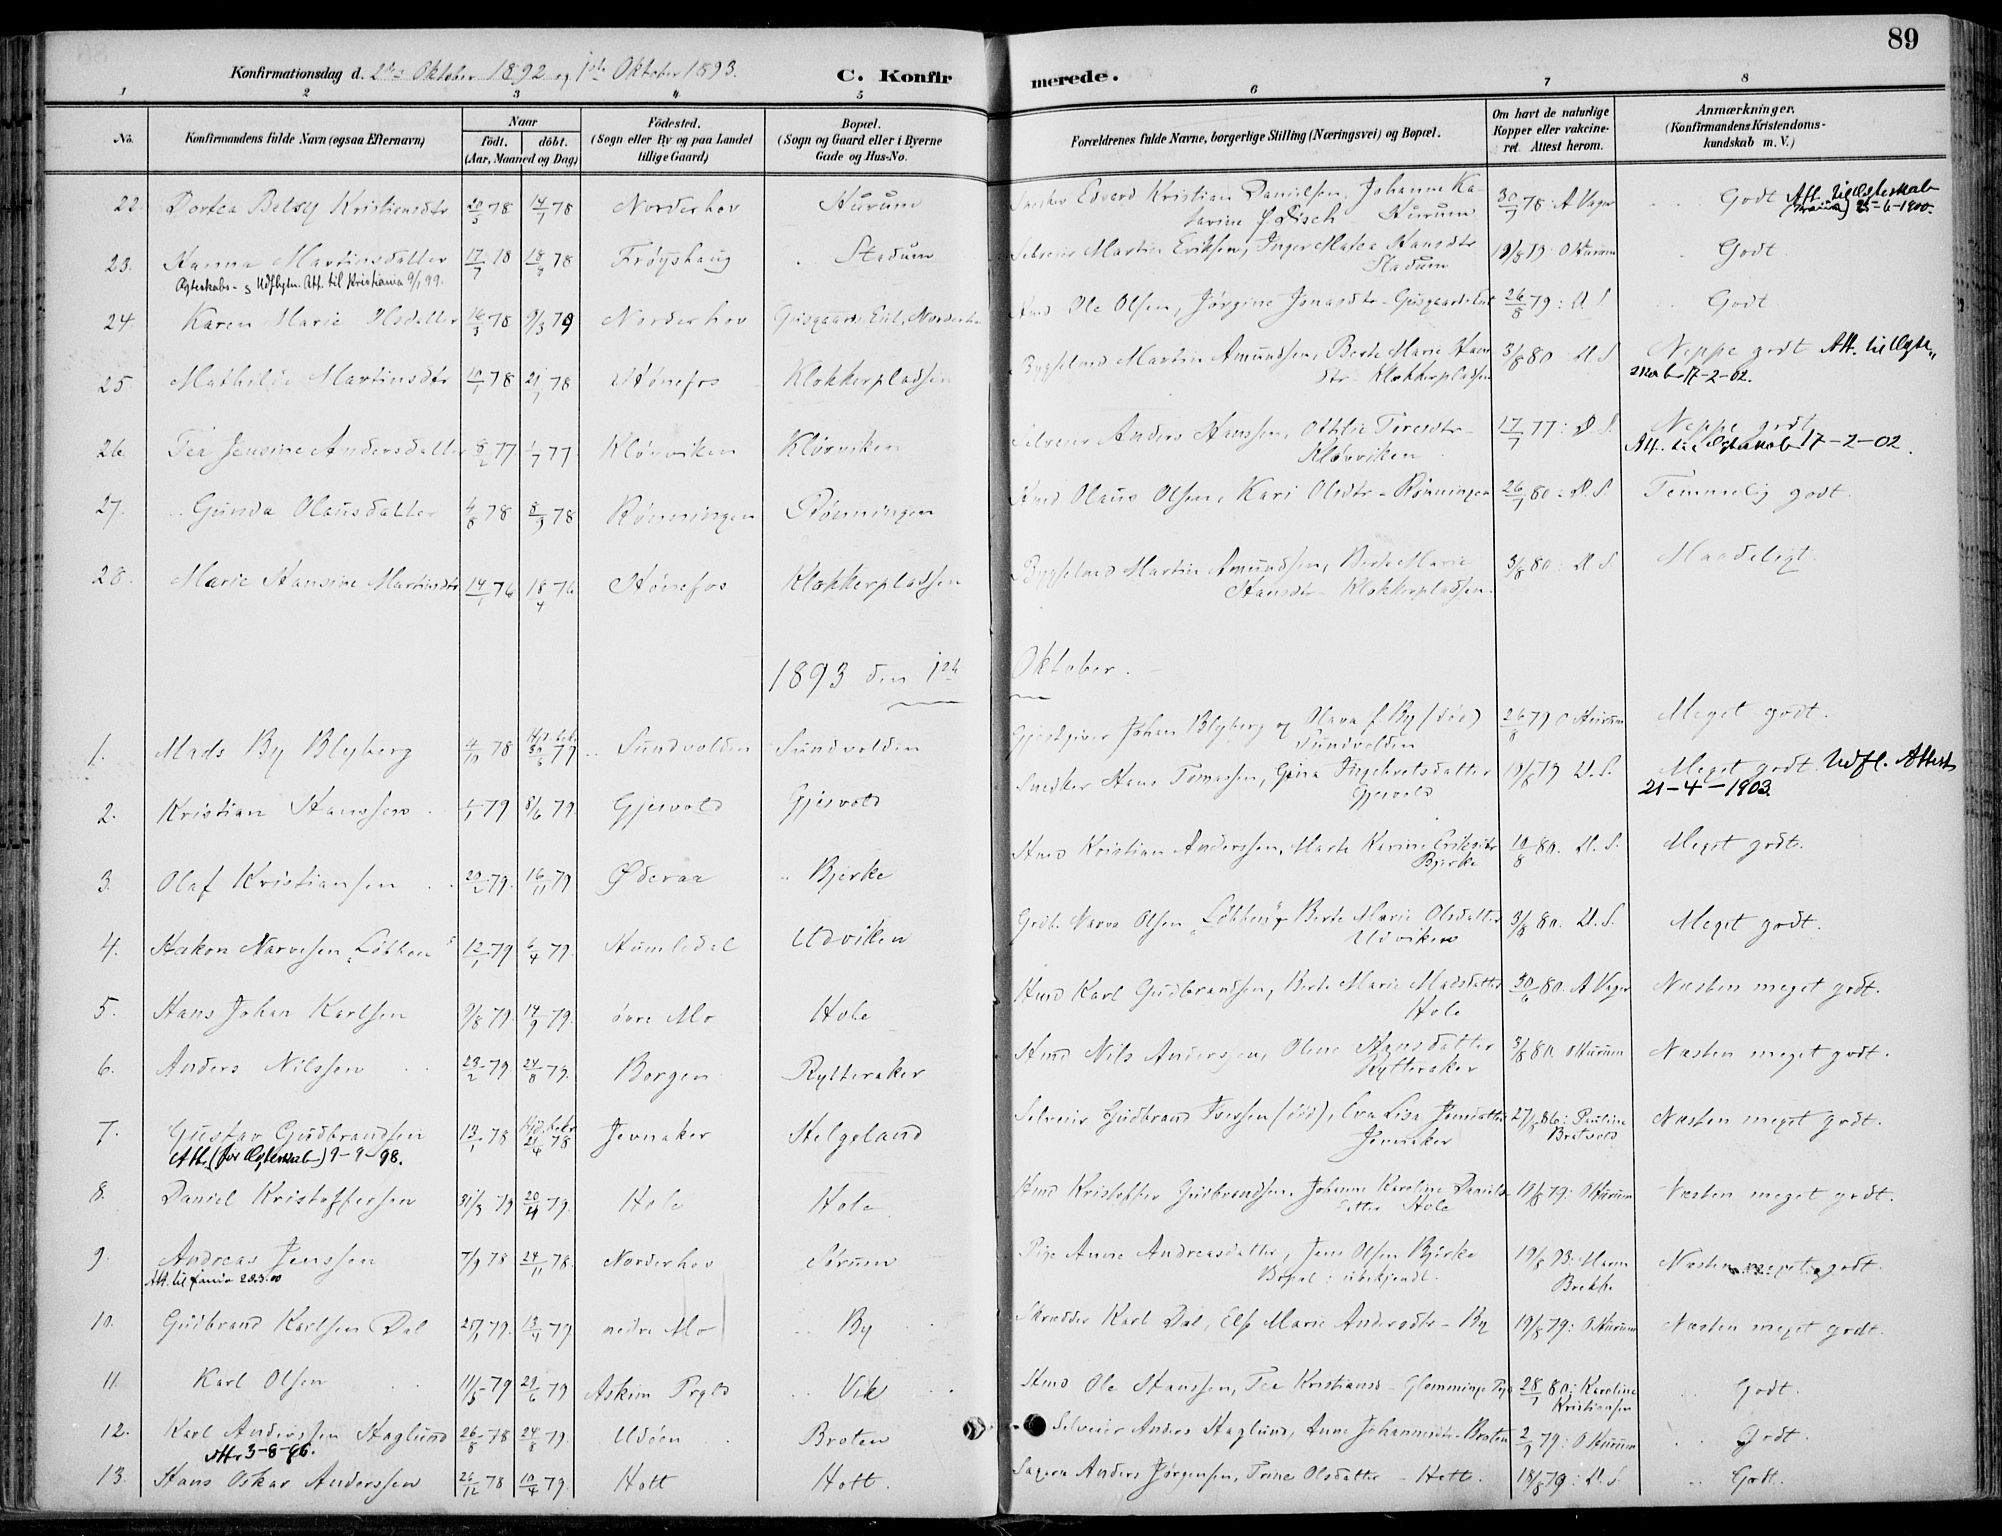 89
Konfirmationsdag d. 2den Oktober 1892 og 1ste Oktober 1893.
C. Konfirmerede.
1 2 3 4 5 6 7 8
No. Konfirmandens fulde Navn (ogsaa Efternavn) Naar Födt. döbt. (Aar, Maaned og Dag) Födested. (Sogn eller By og paa Landet tillige Gaard) Bopæl. (Sogn og Gaard eller i Byerne Gade og Hus-No. Forældrenes fulde Navne, borgerlige Stilling (Næringsvei) og Bopæl. Om havt de naturlige Kopper eller vakcineret. Attest herom. Anmærkninger. (Konfirmandens Kristendomskundskab m. V.)
22. Dortea Betsy Kristiansdtr 20/5 78 14/7 78 Norderhov Hurum Snedker Edvard Kristian Danielsen, Johanne Katarine Disch Hurum 30/7 78: A Vager Godt Att. til Ægteskab 25-6-1900.
23. Hanna Martinsdatter 17/7 18 18/8 78 Frøyshaug Stadum Selveier Martin Eriksen, Inger Matea Hansdtr Stadum 19/8 79: O Hurum Godt.
Ægteskabs- & Udflytn. Att. til Kristiania 9/1 99.
24. Karen Marie Olsdatter 16/3 78 9/3 79 Norderhov Gusgaards Eiet, Norderhov Hmd Ole Olsen, Jørgine Jonasdtr - Gusgaards Eiet 26/8 79: D. S. Godt
25. Mathilde Martinsdtr 10/1 78 21/1 78 Hønefos Klokkerpladsen Bygselmd Martin Amundsen, Berte Marie Hansdtr - Klokkerpladsen 3/8 80: D. S. Neppe godt Att. til Ægteskab 17-2-02.
26. Tea Jensine Andersdatter 8/2 77 1/7 77 Kløvviken Kløvviken Selveier Anders Hanssen, Othlie Toresdtr - Kløvviken 17/7 77: D. S. Neppe godt
Att. til Ægteskab 17-2-02.
27. Gunda Olausdatter 4/8 78 8/9 78 Rønningen Rønningen Hmd Olaus Olsen, Kari Olsdtr - Rønningen 26/7 80: D. S. Temmelig godt.
28. Marie Hansine Martinsdtr 14/1 76 18/4 76 Hønefos Klokkerpladsen Bygselmd Martin Amundsen, Berte Marie Hansdtr - Klokkerpladsen. 3/8 80: D. S. Maadeligt.
1893 den 1ste Oktober.
1. Mads By Blyberg 4/10 78 Hj. debt 30/6 77 Sundvolden Sundvolden Gjestgiver Johan Blyberg og Olava f. By (død) Sundvolden 26/8 79 O Hurum Meget godt.
2. Kristian Hanssen 1/1 79 8/6 79. Gjesvold Gjesvold Snedker Hans Tomassen, Guria Ingebretsdatter Gjesvold 19/8 79 D. S. Meget godt. Udfl. Attest 21-4-1903.
3. Olaf Kristiansen 20/2 79. 16/11 79 Øderaa Bjerke Hmd Kristian Anderssen, Marte Karine Eriksdtr Bjerke 10/8 80. D. S. Meget godt.
4. Hakon Narvesen "Løbben" 12/1 79 6/4 79. Humledal Udviken Grdb. Narve Olsen "Løbben", Berte Marie Olsdatter Udviken 3/8 80. D. S. Meget godt.
5. Hans Johan Karlsen 9/8 79. 14/9 79. øvre Mo Hole Hmd Karl Gudbrandsen, Berte Marie Madsdatter Hole 30/6 80. A Vager Næsten meget godt.
6. Anders Nilssen 23/2 79 24/8 79. Borgen Rytteraker Hmd Nils Anderssen, Olene Hansdatter Rytteraker 3/8 80 O Hurum Næsten meget godt.
7. Gustav Gudbrandsen 13/1 78 Hjd. debt 21/4 78 Jevnaker Helgeland Selveier Gudbrand Iversen (død), Eva Lisa Jensdatter Jevnaker 27/8 86: Pauline Bratvold Næsten meget godt.
Att. (for Ægteskab) 9-9-98.
8. Daniel Kristoffersen 31/3 79 20/4 79. Hole Hole Hmd Kristoffer Gudbrandsen, Johanne Karoline Danielsdatter Hole 19/8 79: O Hurum Næsten meget godt.
9. Andreas Jenssen 7/9 78 24/11 78. Norderhov Sørum Pige Anne Andreasdatter, Jens Olsen Bjerke Bopæl: ubekjendt. 19/8 93: Maren Brekke Næsten meget godt.
Att. til Xania 28.3.00
10. Gudbrand Karlsen Dal 25/1 79. 13/4 79 nedre Mo By Skrædder Karl Dal, Else Marie Andersdtr - By 19/8 79: O Hurum Næsten meget godt.
11. Karl Olsen 11/5 79 29/6 79 Askim Prgld Vik Hmd Ole Hanssen, Tea Kristiansd - Glemminge Prgld 28/1 80: Karoline Kristiansen Godt.
12. Karl Anderssen Haglund 26/8 78 24/8 79. Udøen Broten Selveier Anders Haglund, Anne Johannesdtr - Broten 2/9 79: O Hurum Godt.
Att. 3-8-96.
13. Hans Oskar Anderssen 26/12 78 10/4 79. Holt Holt. Sagern Anders Jørgensen, Trine Olsdatter - Holt. 18/8 79: D. S. Godt.